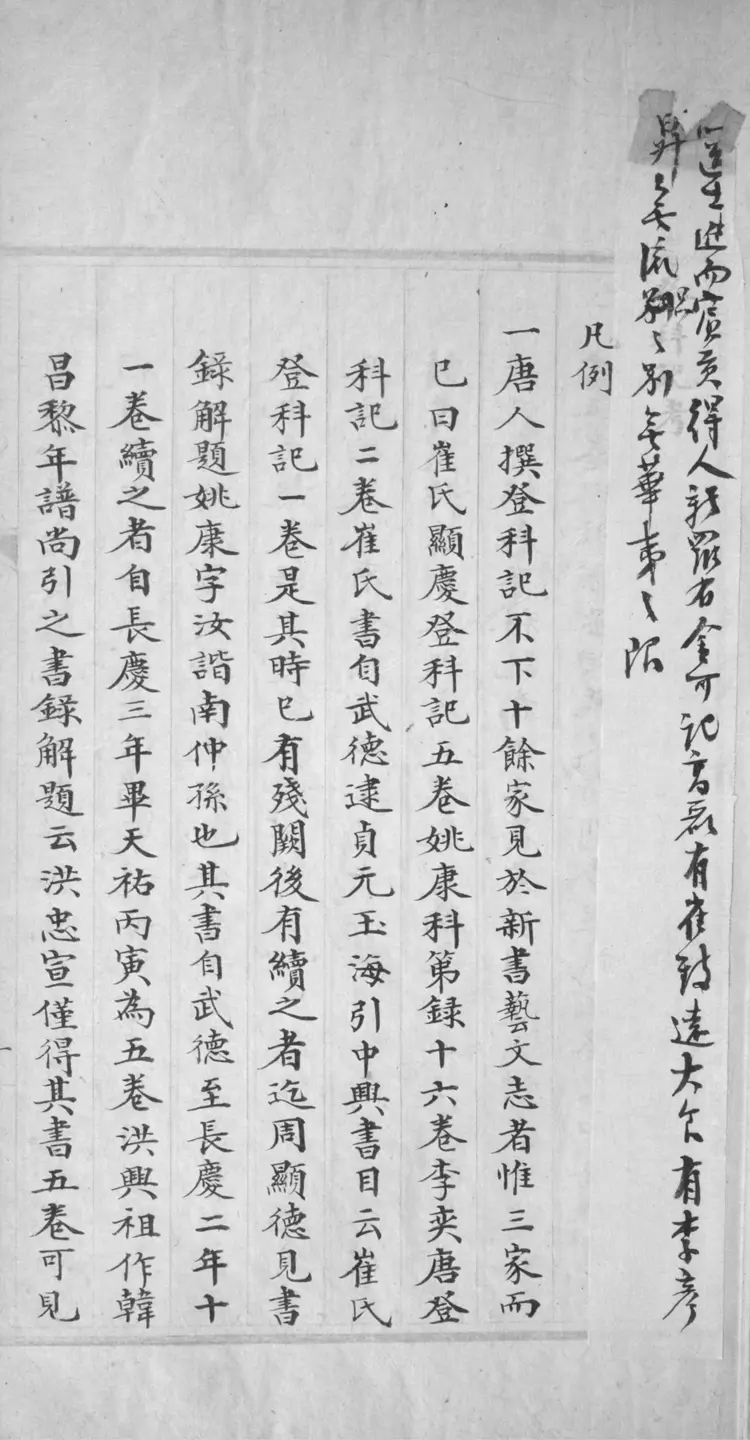 選生進而賓貢得人新羅有金可記高麗有崔致遠大食有李彥
昇無流品之別無華夷之限
凡例
一唐人撰登科記不下十餘家見於新書藝文志者惟三家而
已曰崔氏顯慶登科記五卷姚康科第録十六卷李奕唐登
科記二卷崔氏書自武德逮貞元玉海引中興書目云崔氏
登科記一卷是其時已有殘闕後有續之者迄周顯德見書
録解題姚康字汝諧南仲孫也其書自武德至長慶二年十
一卷續之者自長慶三年畢天祐丙寅為五卷洪興祖作韓
昌黎年譜尚引之書録解題云洪忠宣僅得其書五卷可見